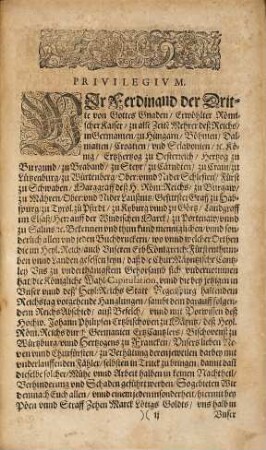 PRIVILEGIVM.
WIr Ferdinand der Drit-
te von Gottes Gnaden / Erwöhlter Römi-
scher Kaiser / zu allen Zeit Mehrer deß Reichs /
in Germanien / zu Hungarn / Böhmen / Dal-
matien / Croatien / vnd Sclavonien / ꝛc. Kö-
nig / Ertzhertzog zu Oesterreich / Hertzog zu
Burgund / zu Braband / zu Steyr / zu Cärndten / zu Crain / zu
Lützenburg / zu Würtenberg / Ober vnnd Nider Schlesien / Fürst
zu Schwaben / Marggraff deß H. Röm. Reichs / zu Burgaw /
zu Mähren / Ober vnd Nider Laußnitz / Gefürster Graff zu Hab-
spurg / zu Tyrol / zu Pfirdt / zu Kyburg vnd zu Görtz / Landgraff
im Elsaß / Herr auff der Windischen Marck / zu Portenaw / vnnd
zu Salins / ꝛc. Bekennen vnd thun kund menniglichen / vnd son-
derlich allen vnd jeden Buchtruckern / wo vnd welcher Orthen
die im Heyl. Reich / auch Vnseren Erb Königreich / Fürstenthum-
ben vnnd Landen gesessen seyn / daß die Chur Mäyntzische Cantz-
ley Vns zu vnderthänigstem Gehorsamb sich vndernommen
hat die Königliche Wahl Capitulation, vnd die bey jetzigem zu
Vnser vnnd deß Heyl. Reichs Statt Regenspurg haltenden
Reichstag vorgehende Handlungen / sambt dem darauff folgen-
dem Reichs Abschied / auß Befelch / vnd mit Vorwissen deß
Hochw. Johann Philipsen Ertzbischoven zu Mäyntz / deß Heyl.
Röm. Reichs durch Germanien Ertz Cantzlers / Bischoven zu
Würtzburg / vnnd Hertzogens zu Francken / Vnsers lieben Ne-
ven vnnd Churfürsten / zu Verhütung deren jeweilen darbey mit
vnderlauffenden Fähler / selbsten in Truck zu bringen / damit auch
dieselbe solcher / Mühe vnnd Arbeit halben in keinen Nachtheil /
Verhinderung vnd Schaden geführt werden. So gebieten Wir
demnach Euch allen / vnnd einem jeden insonderheit / hiermit bey
Pöen vnnd Straff Zehen Marck Löttigs Goldts / vns halb in
)( ij Vnser